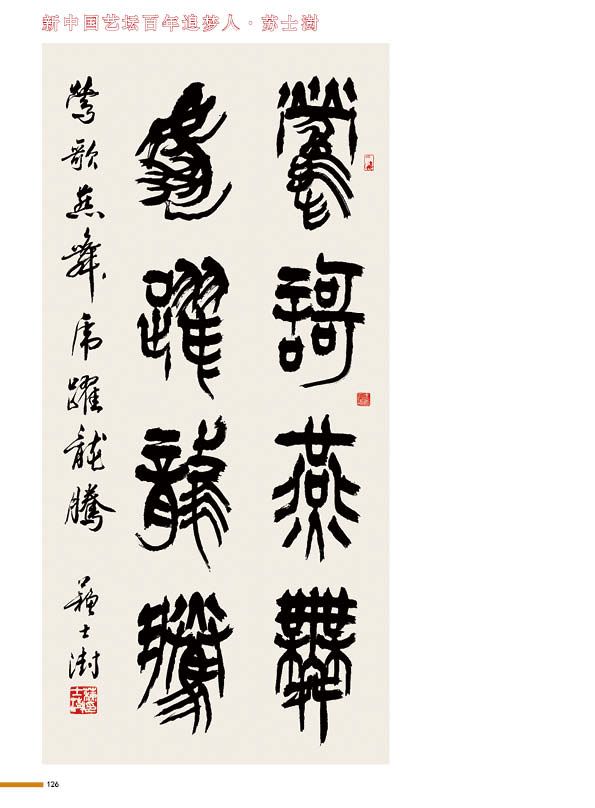 新中国艺坛百年追梦人·苏士澍
鶯謌燕舞
虎躍龍騰
鶯歌燕舞虎躍龍騰 蘇士澍
126